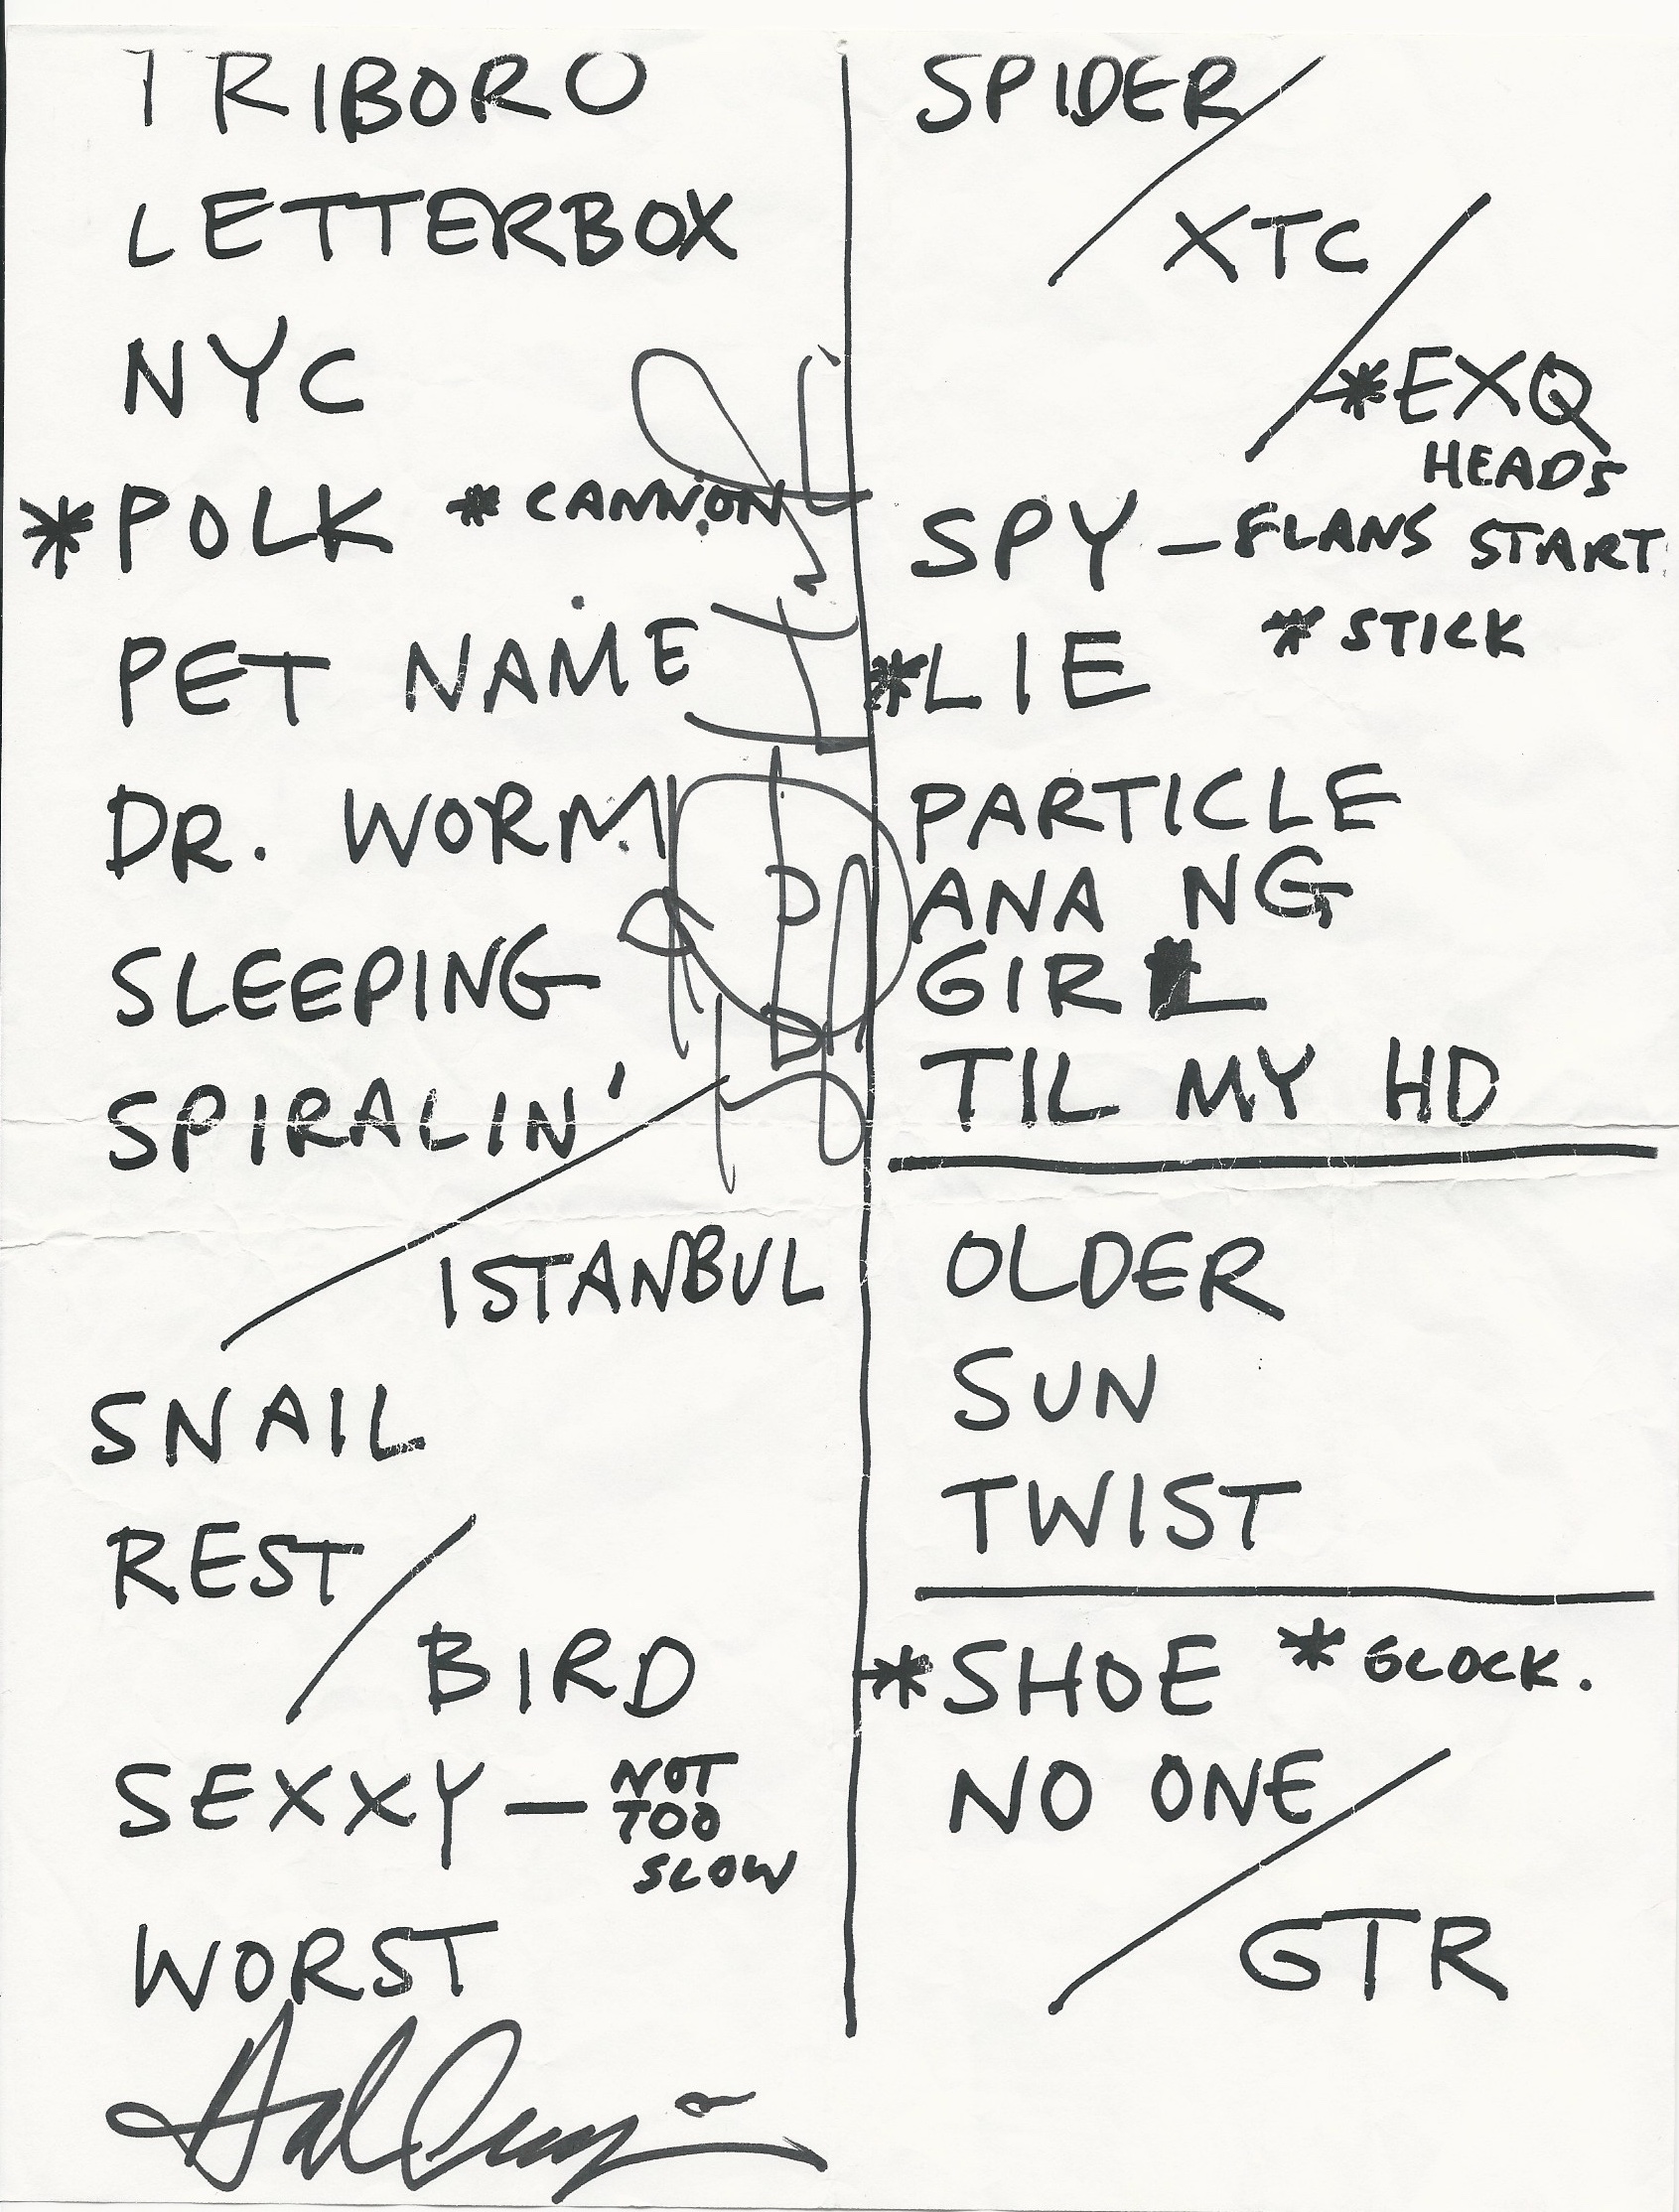 TRIBORO
LETTERBOX
NYC
*POLK *CANNON
PET NAME
DR. WORM
SLEEPING
SPIRALIN' /
ISTANBUL
SNAIL
REST /
BIRD
SEXXY — NOT
TOO
SLOW
WORST
SPIDER /
XTC /
*EXQ
HEADS
SPY — FLANS START
*LIE *STICK
PARTICLE
ANA NG
GIRL
TIL MY HD
OLDER
SUN
TWIST
*SHOE *GLOCK.
NO ONE /
GTR